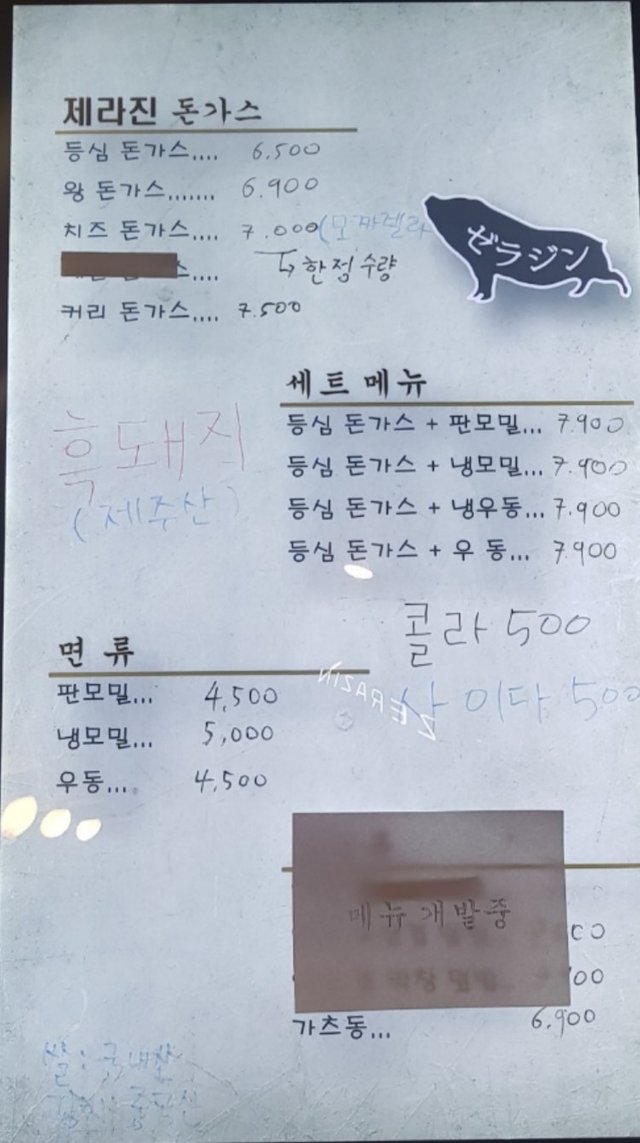 제라진 돈가스
등심 돈가스.... 6.500
왕 돈가스....... 6.900
치즈 돈가스.... 7.000(모짜렐라
↳한정수량
커리 돈가스.... 7.500
ゼラジン
세트메뉴
등심 돈가스 + 판모밀... 7.900
등심 돈가스 + 냉모밀... 7.900
등심 돈가스 + 냉우동... 7.900
등심 돈가스 + 우 동... 7.900
흑돼지
(제주산)
콜라 500
사이다 500
ZERAZIN
면 류
판모밀... 4,500
냉모밀... 5,000
우동... 4,500
메뉴개발중
가츠동... 6,900
쌀: 국내산